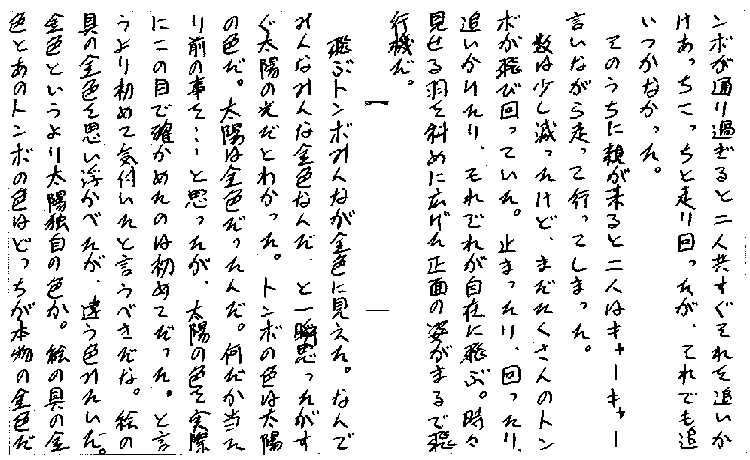 ンボが通り過ぎると二人共すぐそれを追いか
けあっちこっちと走り回ったが、それでも追
いつかなかった。
そのうちに親が来ると二人はキャーキャー
言いながら走って行ってしまった。
数は少し減ったけど、まだたくさんのトン
ボが飛び回っていた。止まったり、回ったり、
追いかけたり、それぞれが自在に飛ぶ。時々
見せる羽を斜めに広げた正面の姿がまるで飛
行機だ。
飛ぶトンボみんなが金色に見えた。なんで
みんなみんな金色なんだ、と一瞬思ったがす
ぐ太陽の光だとわかった。トンボの色は太陽
の色だ。太陽は金色だったんだ。何だか当た
り前の事を…と思ったが、太陽の色を実際
にこの目で確かめたのは初めてだった。と言
うより初めて気付いたと言うべきだな。絵の
具の金色を思い浮かべたが、違う色みたいだ。
金色というより太陽独自の色か。絵の具の金
色とあのトンボの色はどっちが本物の金色だ